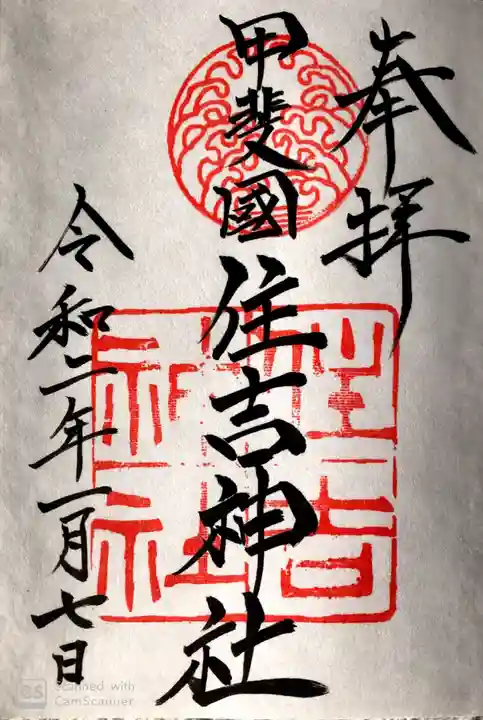 奉拝
甲斐國住吉神社
令和二年一月七日
住吉神社
CS Scanned with
CamScanner